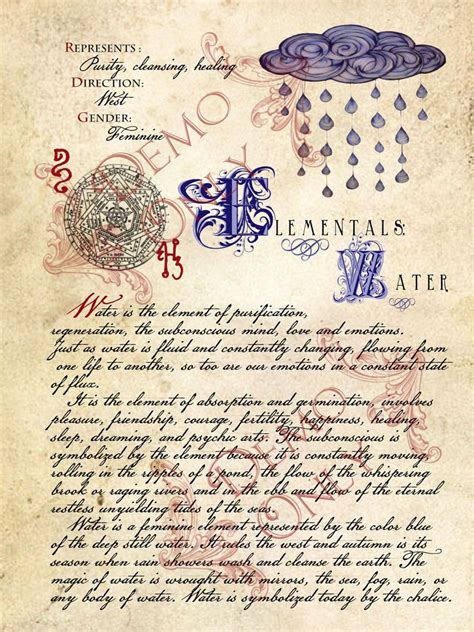 Represents:
Purity, cleansing, healing
Direction:
West
Gender:
Feminine
Demo
Only
Elementals:
Water
Water is the element of purification,
regeneration, the subconscious mind, love and emotions.
Just as water is fluid and constantly changing, flowing from
one life to another, so too are our emotions in a constant state
of flux.
It is the element of absorption and germination, involves
pleasure, friendship, courage, fertility, happiness, healing,
sleep, dreaming, and psychic arts. The subconscious is
symbolized by the element because it is constantly moving,
rolling in the ripples of a pond, the flow of the whispering
brook or raging rivers and in the ebb and flow of the eternal
restless unyielding tides of the seas.
Water is a feminine element represented by the color blue
of the deep still water. It rules the west and autumn is its
season when rain showers wash and cleanse the earth. The
magic of water is wrought with mirrors, the sea, fog, rain, or
any body of water. Water is symbolized today by the chalice.
Demo
Only